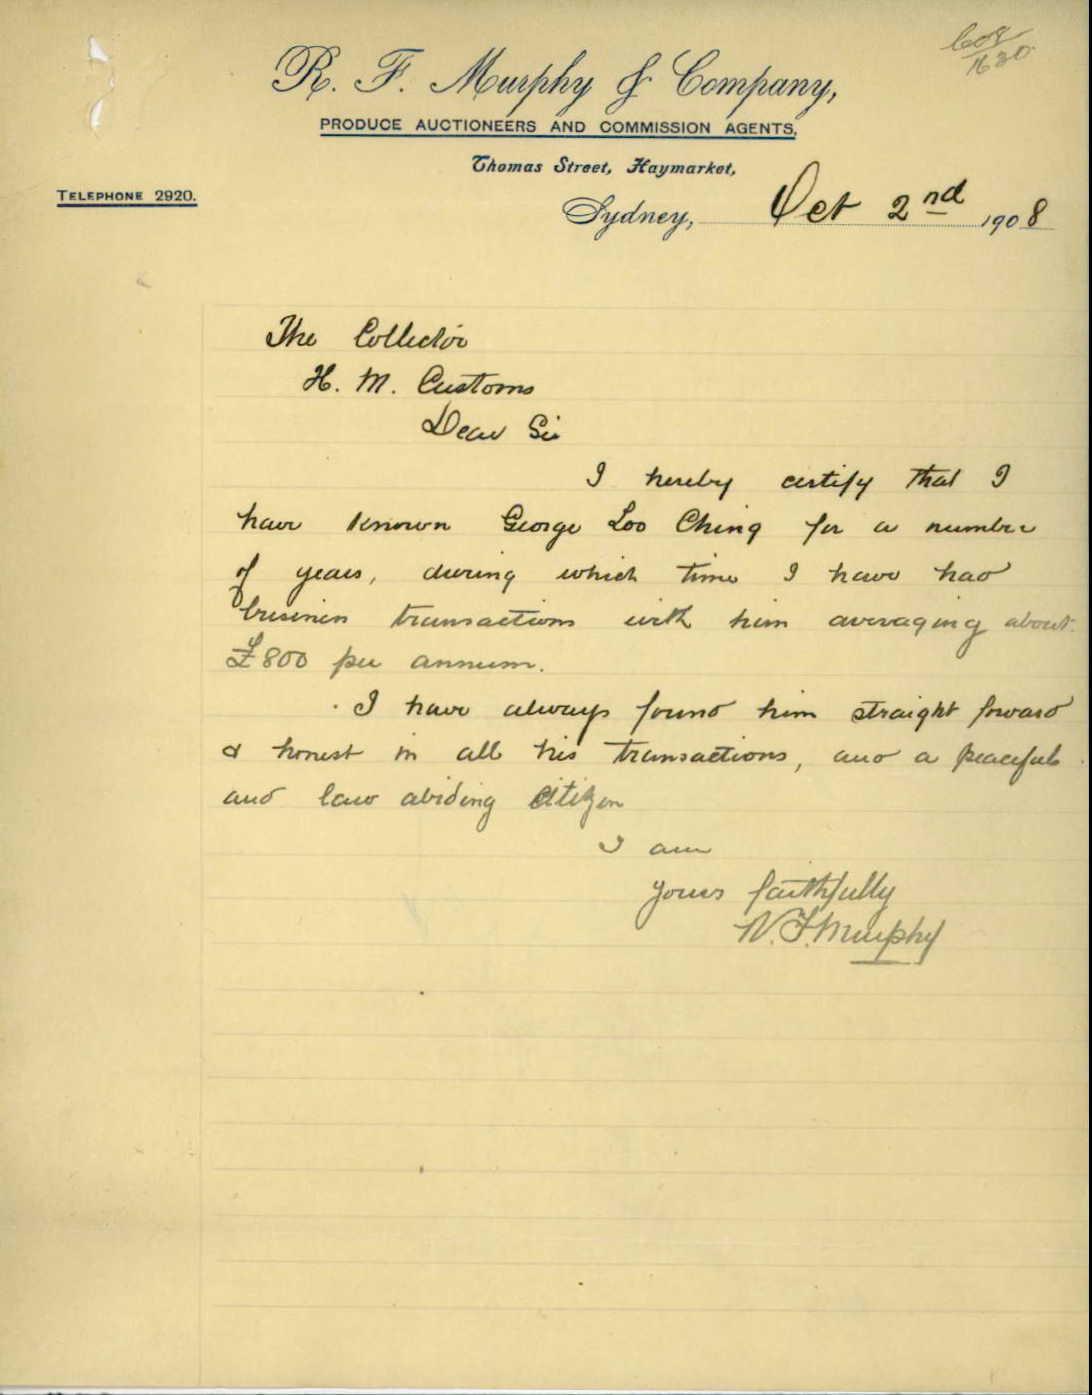 608
1630
R. F. Murphy & Company,
PRODUCE AUCTIONEERS AND COMMISSION AGENTS,
Thomas Street, Haymarket,
TELEPHONE 2920.
Sydney, Oct 2nd 1908
The Collector
H. M. Customs
Dear Sir
I hereby certify that I
have known George Loo Ching for a number
of years, during which time I have had
business transactions with him averaging about
£800 per annum.
I have always found him straight forward
& honest in all his transactions, and a peaceful
and law abiding citizen
I am
yours faithfully
R. F. Murphy